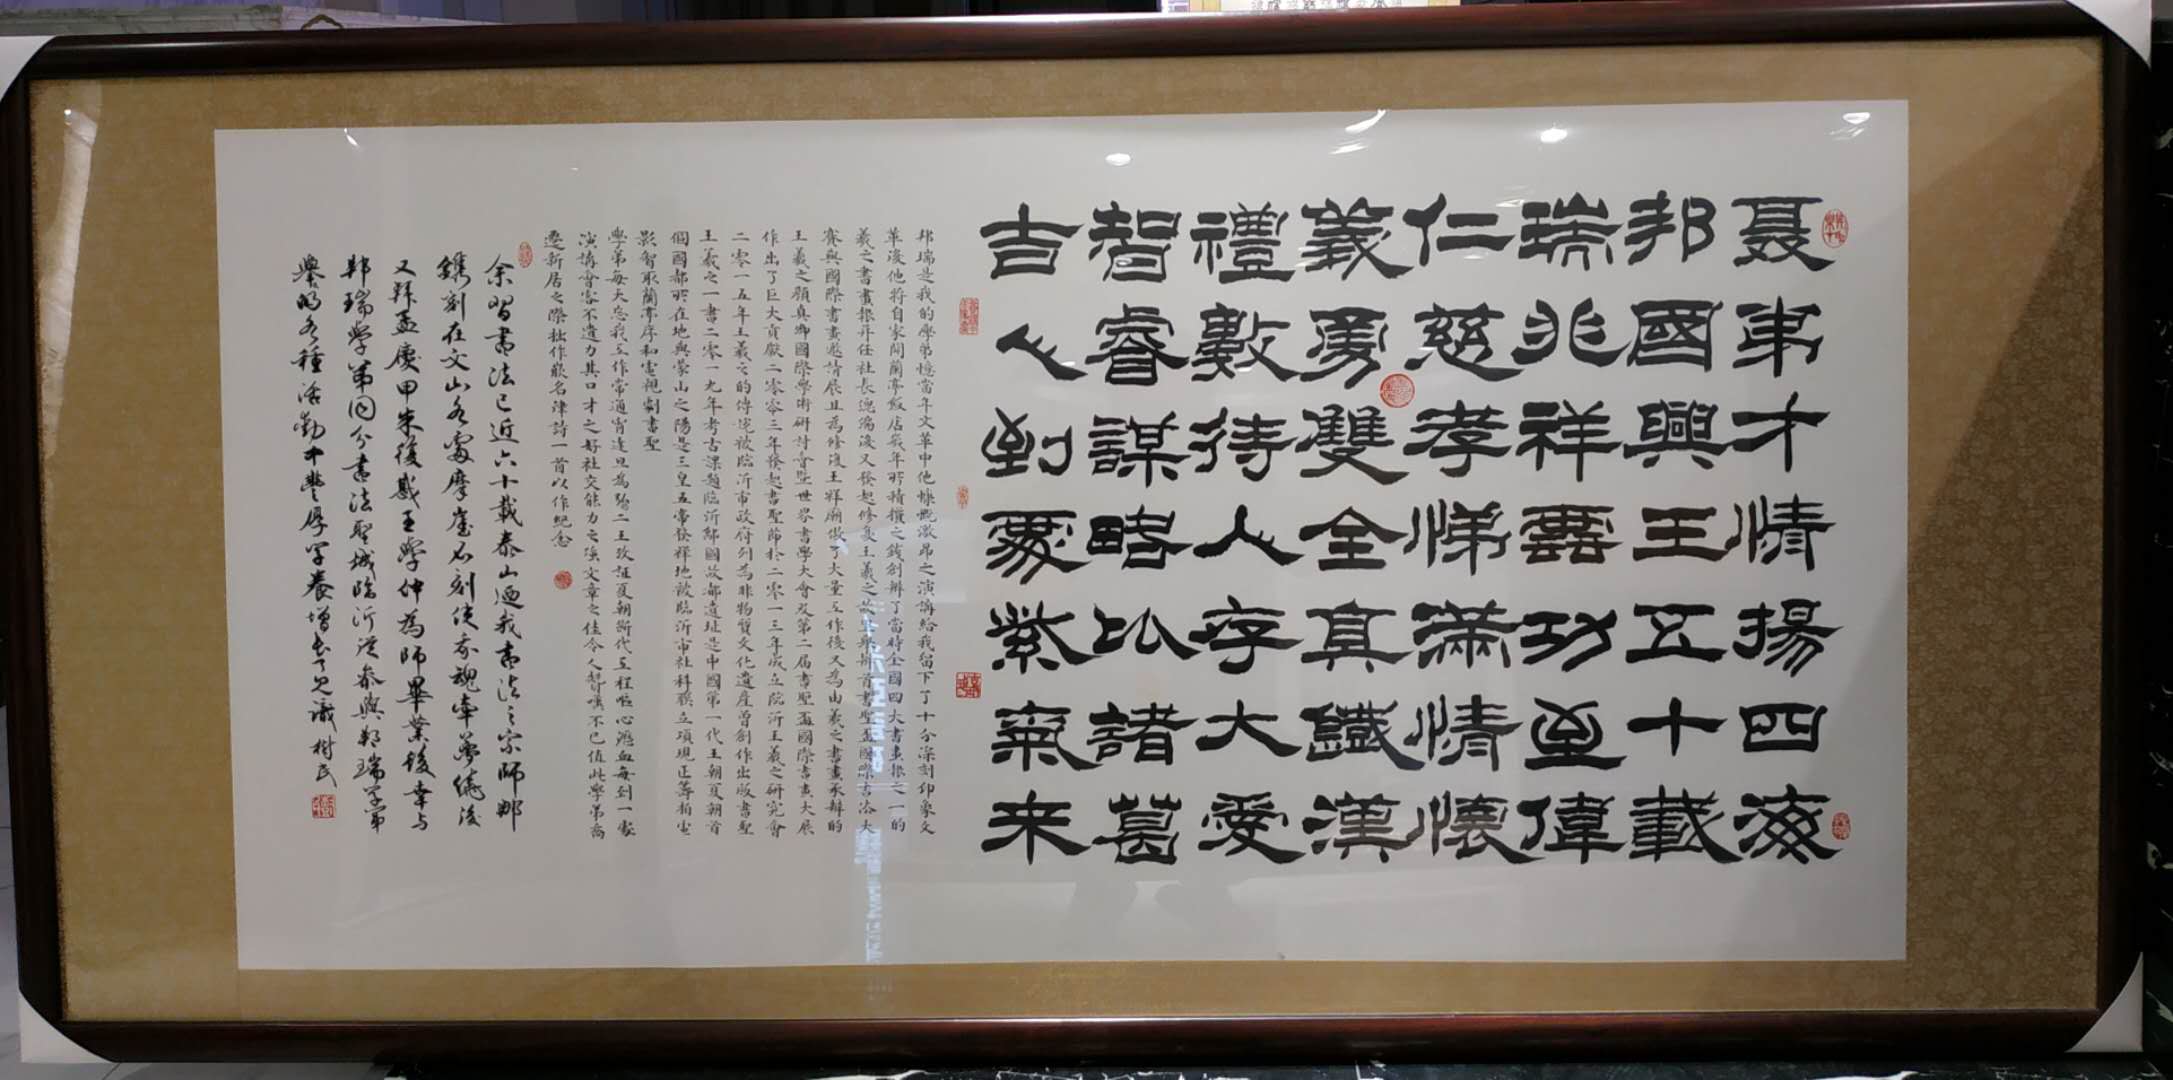 聂弟才情揚四海
邦國興王五十載
瑞兆祥雲功至偉
仁慈孝悌滿情懷
義勇雙全真鐵漢
禮數待人存大愛
智睿謀略比諸葛
吉人到處紫氣来
邦瑞是我的學弟憶當年文革中他慷慨激昂之演講給我留下了十分深刻印象文
革後他將自家開蘭亭飯店幾年所積攢之錢創辦了當時全國四大書畫報之一的
羲之書畫報并任社長總編後又發起修复王羲之故里舉辦首書聖盃國際書法大
賽與國際書畫邀請展且為修復王祥廟做了大量工作後又為由羲之書畫承辦的
王羲之顏真卿國際學術研討會暨世界書學大會及第二届書聖盃國際書畫大展
作出了巨大貢獻二零零三年發起書聖節於二零一三年成立院沂王羲之研究會
二零一五年王羲之的傳说被臨沂市政府列為非物質文化遺産曾創作出版書聖
王羲之一書二零一九年考古課題臨沂鄅國故都遺址是中國第一代王朝夏朝首
個國都所在地與蒙山之陽是三皇五帝發祥地被臨沂市社科联立項現正籌拍電
影智取蘭亭序和電視劇書聖
學弟每天忘我工作常通宵達旦為證二王攷証夏朝断代工程嘔心瀝血每到一處
演講會客不遺力其口才之好社交能力之强文章之佳令人讚嘆不已值此學弟喬
遷新居之際拙作嵌名律詩一首以作紀念
余習書法已近六十載泰山廼我書法之宗師那
鐫刻在文山各處摩崖石刻使我魂牽夢繞後
又拜孟慶甲朱復戡王學仲為師畢業後幸与
邦瑞學弟同分書法聖城臨沂從參與邦瑞學弟
舉的各種活動中豐厚学養增長了見識樹民